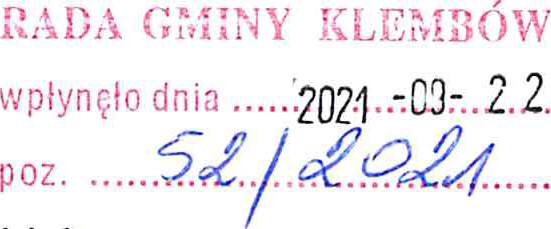 RADA GMINY KLEMBÓW
wpłynęło dnia ......2021.-09-.2.2.
poz. ......52/2021......